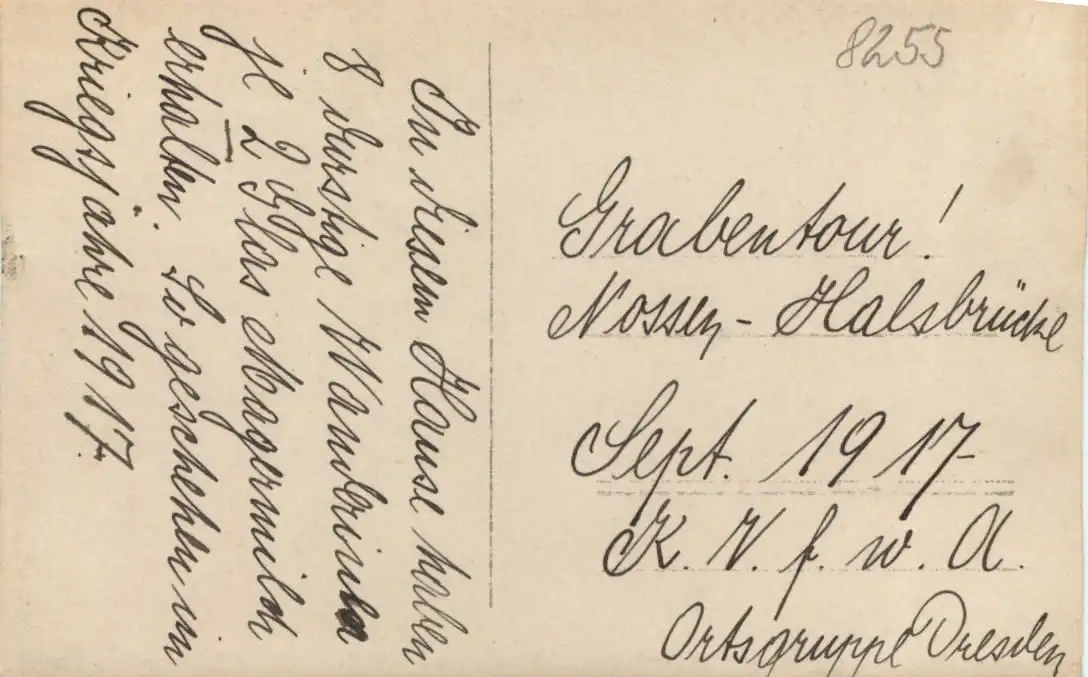 8255
In diesem Hause haben
8 durstige Wandrinnen
je 2 Glas Magermilch
erhalten. So geschehen im
Kriegsjahre 1917.
Grabentour!
Nossen - Halsbrücke
Sept. 1917
K. V. f. w. A.
Ortsgruppe Dresden